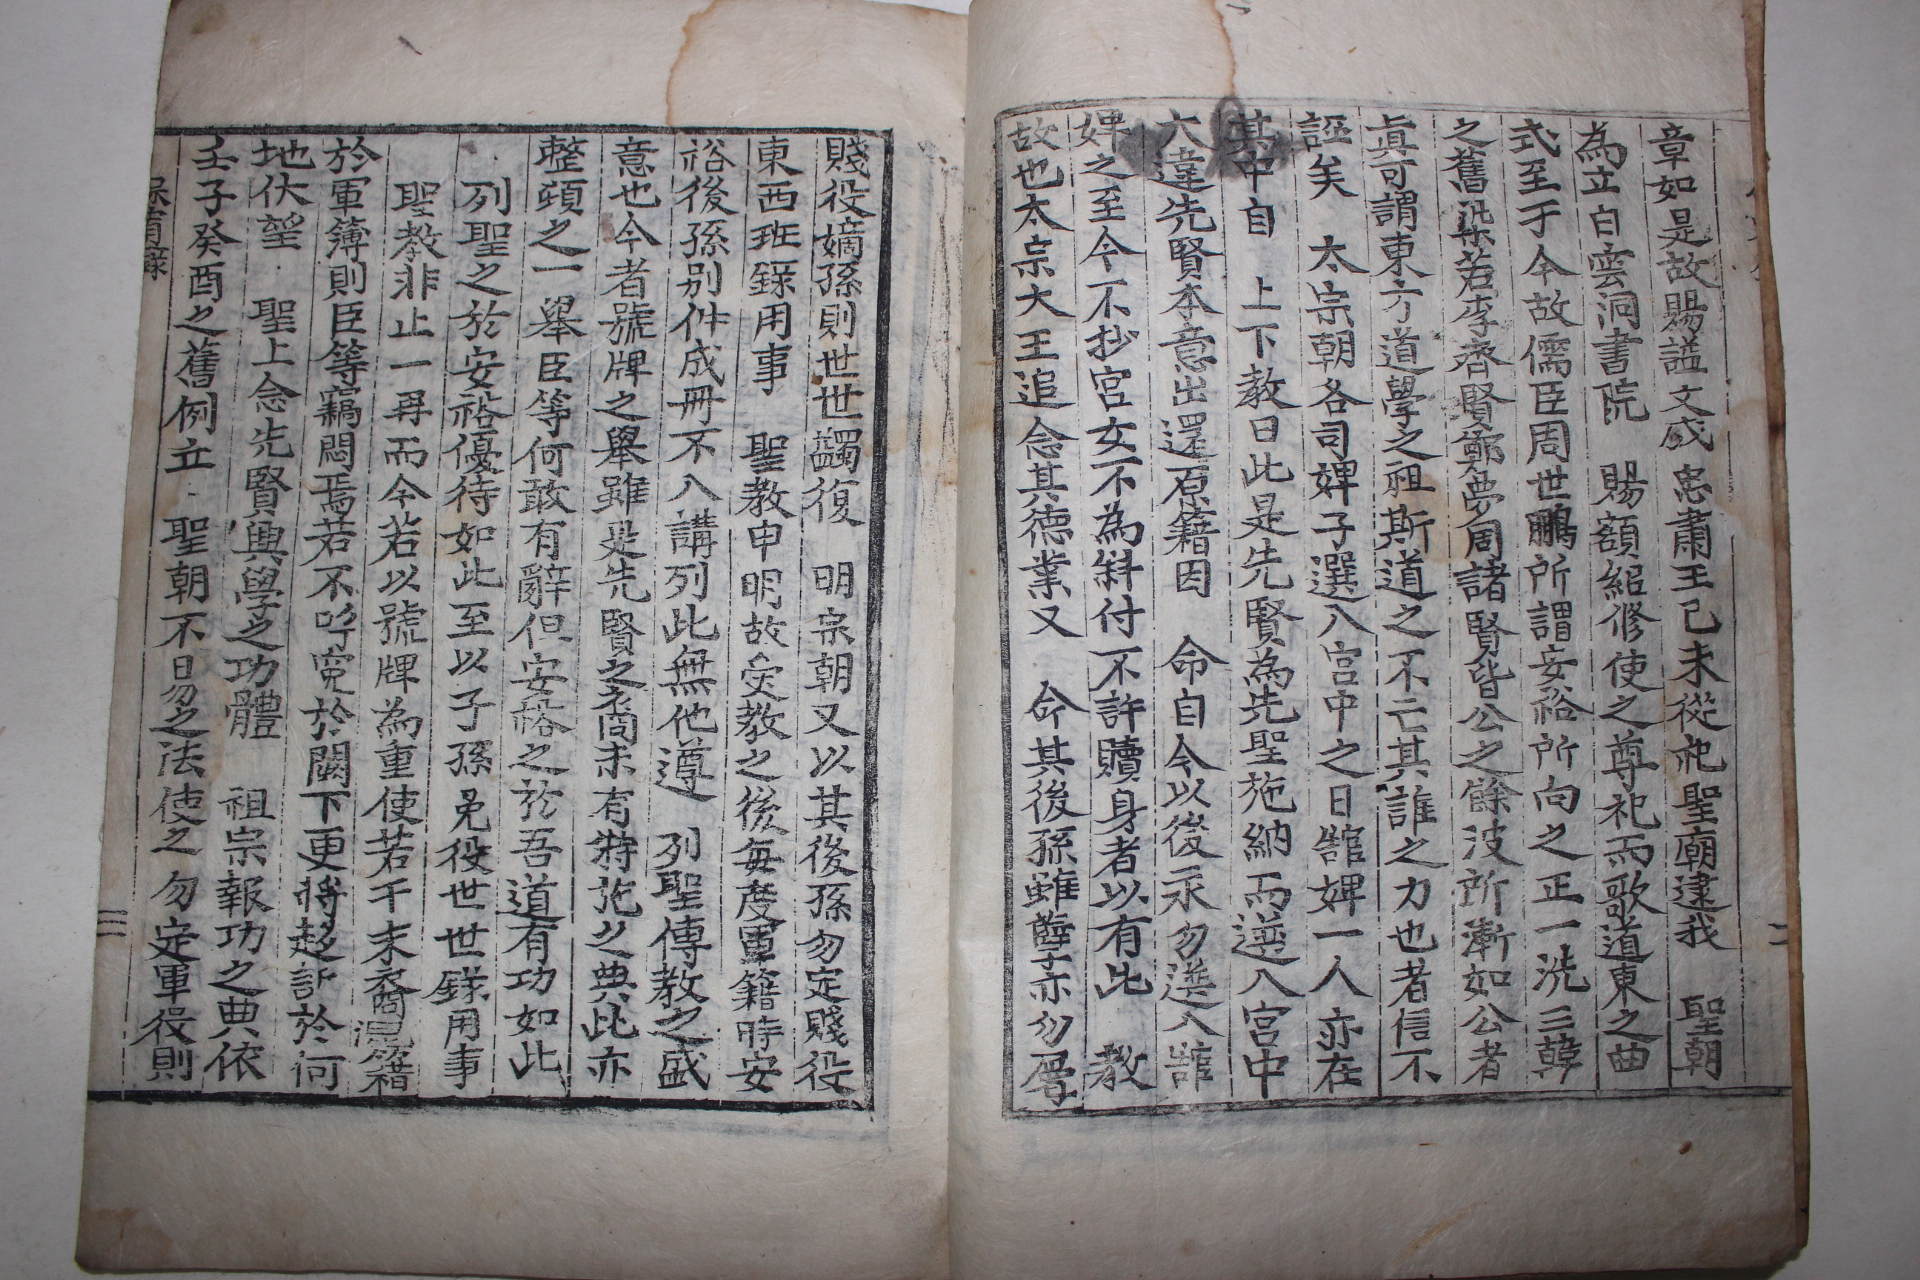 章如是故賜謚文成忠肅王己未從祀聖廟逮我　聖朝
為立白雲洞書院　賜額紹修使之尊祀而歌道東之曲
式至于今故儒臣周世鵬所謂安裕所向之正一洗三韓
之舊染若李齊賢鄭夢周諸賢皆公之餘波所漸如公者
眞可謂東方道學之祖斯道之不亡其誰之力也者信不
誣矣　太宗朝各司婢子選入宮中之日館婢一人亦在
其中自　上下敎曰此是先賢為先聖施納而選入宮中
大違先賢本意出還原籍因　命自今以後永勿選入館
婢之至今不抄宮女不為斜付不許贖身者以有此　敎
故也太宗大王追念其德業又　命其後孫雖孽系勿孱
賤役嫡孫則世世蠲復　明宗朝又以其後孫勿定賤役
東西班錄用事　聖敎申明故受敎之後每度軍籍時安
裕後孫別件成冊不入講列此無他遵　列聖傳敎之盛
意也今者號牌之擧雖是先賢之裔未有特施之典此亦
整頓之一擧臣等何敢有辭但安裕之於吾道有功如此
列聖之於安裕優待如此至以子孫免役世世錄用事
聖敎非止一再而今若以號牌為重使若干末裔混籍
於軍簿則臣等竊悶焉若不吁寃於闕下更將趍訴於何
地伏望　聖上念先賢興學之功體　祖宗報功之典依
壬子癸酉之舊例立　聖朝不日勿之法使之勿定軍役則